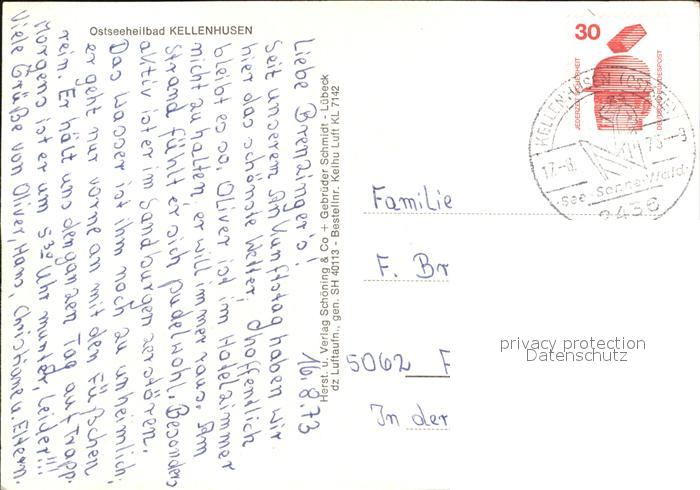 Ostseeheilbad KELLENHUSEN
16.8.73
Liebe Brenzinger's!
Seit unserem Ankunftstag haben wir
hier das schönste Wetter. Hoffentlich
bleibt es so, Oliver ist im Hotelzimmer
nicht zu halten, er will immer raus. Am
Strand fühlt er sich pudelwohl. Besonders
aktiv ist er im Sandburgen zerstören.
Das Wasser ist ihm noch zu unheimlich,
er geht nur vorne an mit den Füßchen
rein. Er hält uns den ganzen Tag auf Trapp.
Morgens ist er um 5³⁰ Uhr munter, leider!!!
Viele Grüße von Oliver, Hans, Christiane u. Eltern.
Herst. u. Verlag Schöning & Co + Gebrüder Schmidt - Lübeck
dz Luftaufn., gen. SH 40113 - Bestellnr. Kelhu Luft KL 7142
30
JEDERZEIT SICHERHEIT
DEUTSCHE BUNDESPOST
KELLENHUSEN (OSTSEE)
17.-8. 73.-9
See-Sonne-Wald
2436
Familie
F. Br
5062 F
In der
privacy protection
Datenschutz